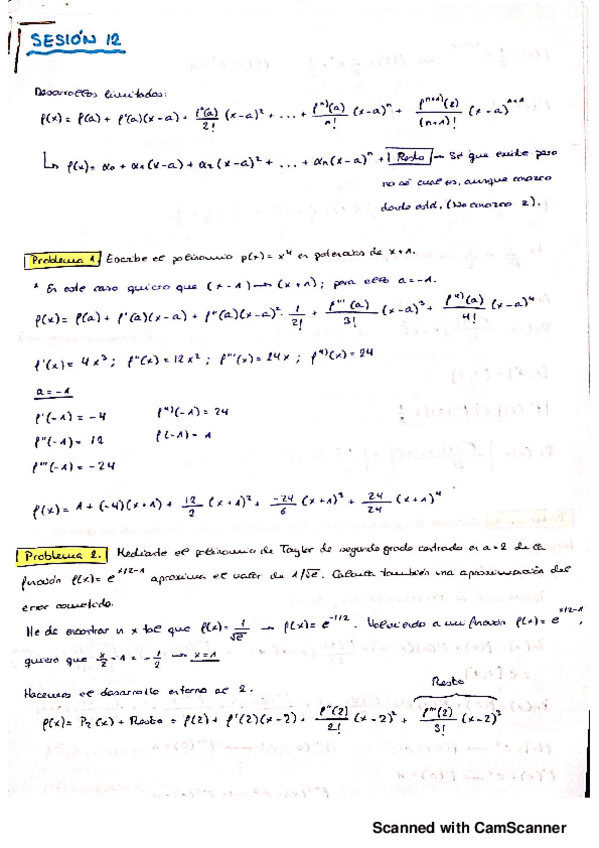 SESIÓN 12
Desarrollos limitados:
f(x) = f(a) + f'(a)(x-a) + f''(a)/2! (x-a)² + ... + fⁿ⁾(a)/n! (x-a)ⁿ + fⁿ⁺¹⁾(z)/(n+1)! (x-a)ⁿ⁺¹
↳ f(x) = α₀ + α₁(x-a) + α₂(x-a)² + ... + αₙ(x-a)ⁿ + Resto → Sé que existe pero
no sé cual es, aunque conozco
donde está. (No conozco z).
Problema 1. Escribe el polinomio p(x) = x⁴ en potencias de x+1.
* En este caso quiero que (x-1) → (x+1); para ello a=-1.
f(x) = f(a) + f'(a)(x-a) + f''(a)(x-a)² · 1/2! + f'''(a)/3! (x-a)³ + f⁴⁾(a)/4! (x-a)⁴
f'(x) = 4x³; f''(x) = 12x²; f'''(x) = 24x; f⁴⁾(x) = 24
a = -1
f'(-1) = -4 f⁴⁾(-1) = 24
f''(-1) = 12 f(-1) = 1
f'''(-1) = -24
f(x) = 1 + (-4)(x+1) + 12/2 (x+1)² + -24/6 (x+1)³ + 24/24 (x+1)⁴
Problema 2. Mediante el polinomio de Taylor de segundo grado centrado en a=2 de la
función f(x) = e^(x/2-1) aproxima el valor de 1/√e. Calcula también una aproximación del
error cometido.
He de encontrar un x tal que f(x) = 1/√e → f(x) = e^(-1/2). Volviendo a mi función f(x) = e^(x/2-1),
quiero que x/2 - 1 = -1/2 → x=1
Hacemos el desarrollo entorno al 2.
Resto
f(x) = P₂(x) + Resto = f(2) + f'(2)(x-2) + f''(2)/2! (x-2)² + f'''(2)/3! (x-2)³
Scanned with CamScanner